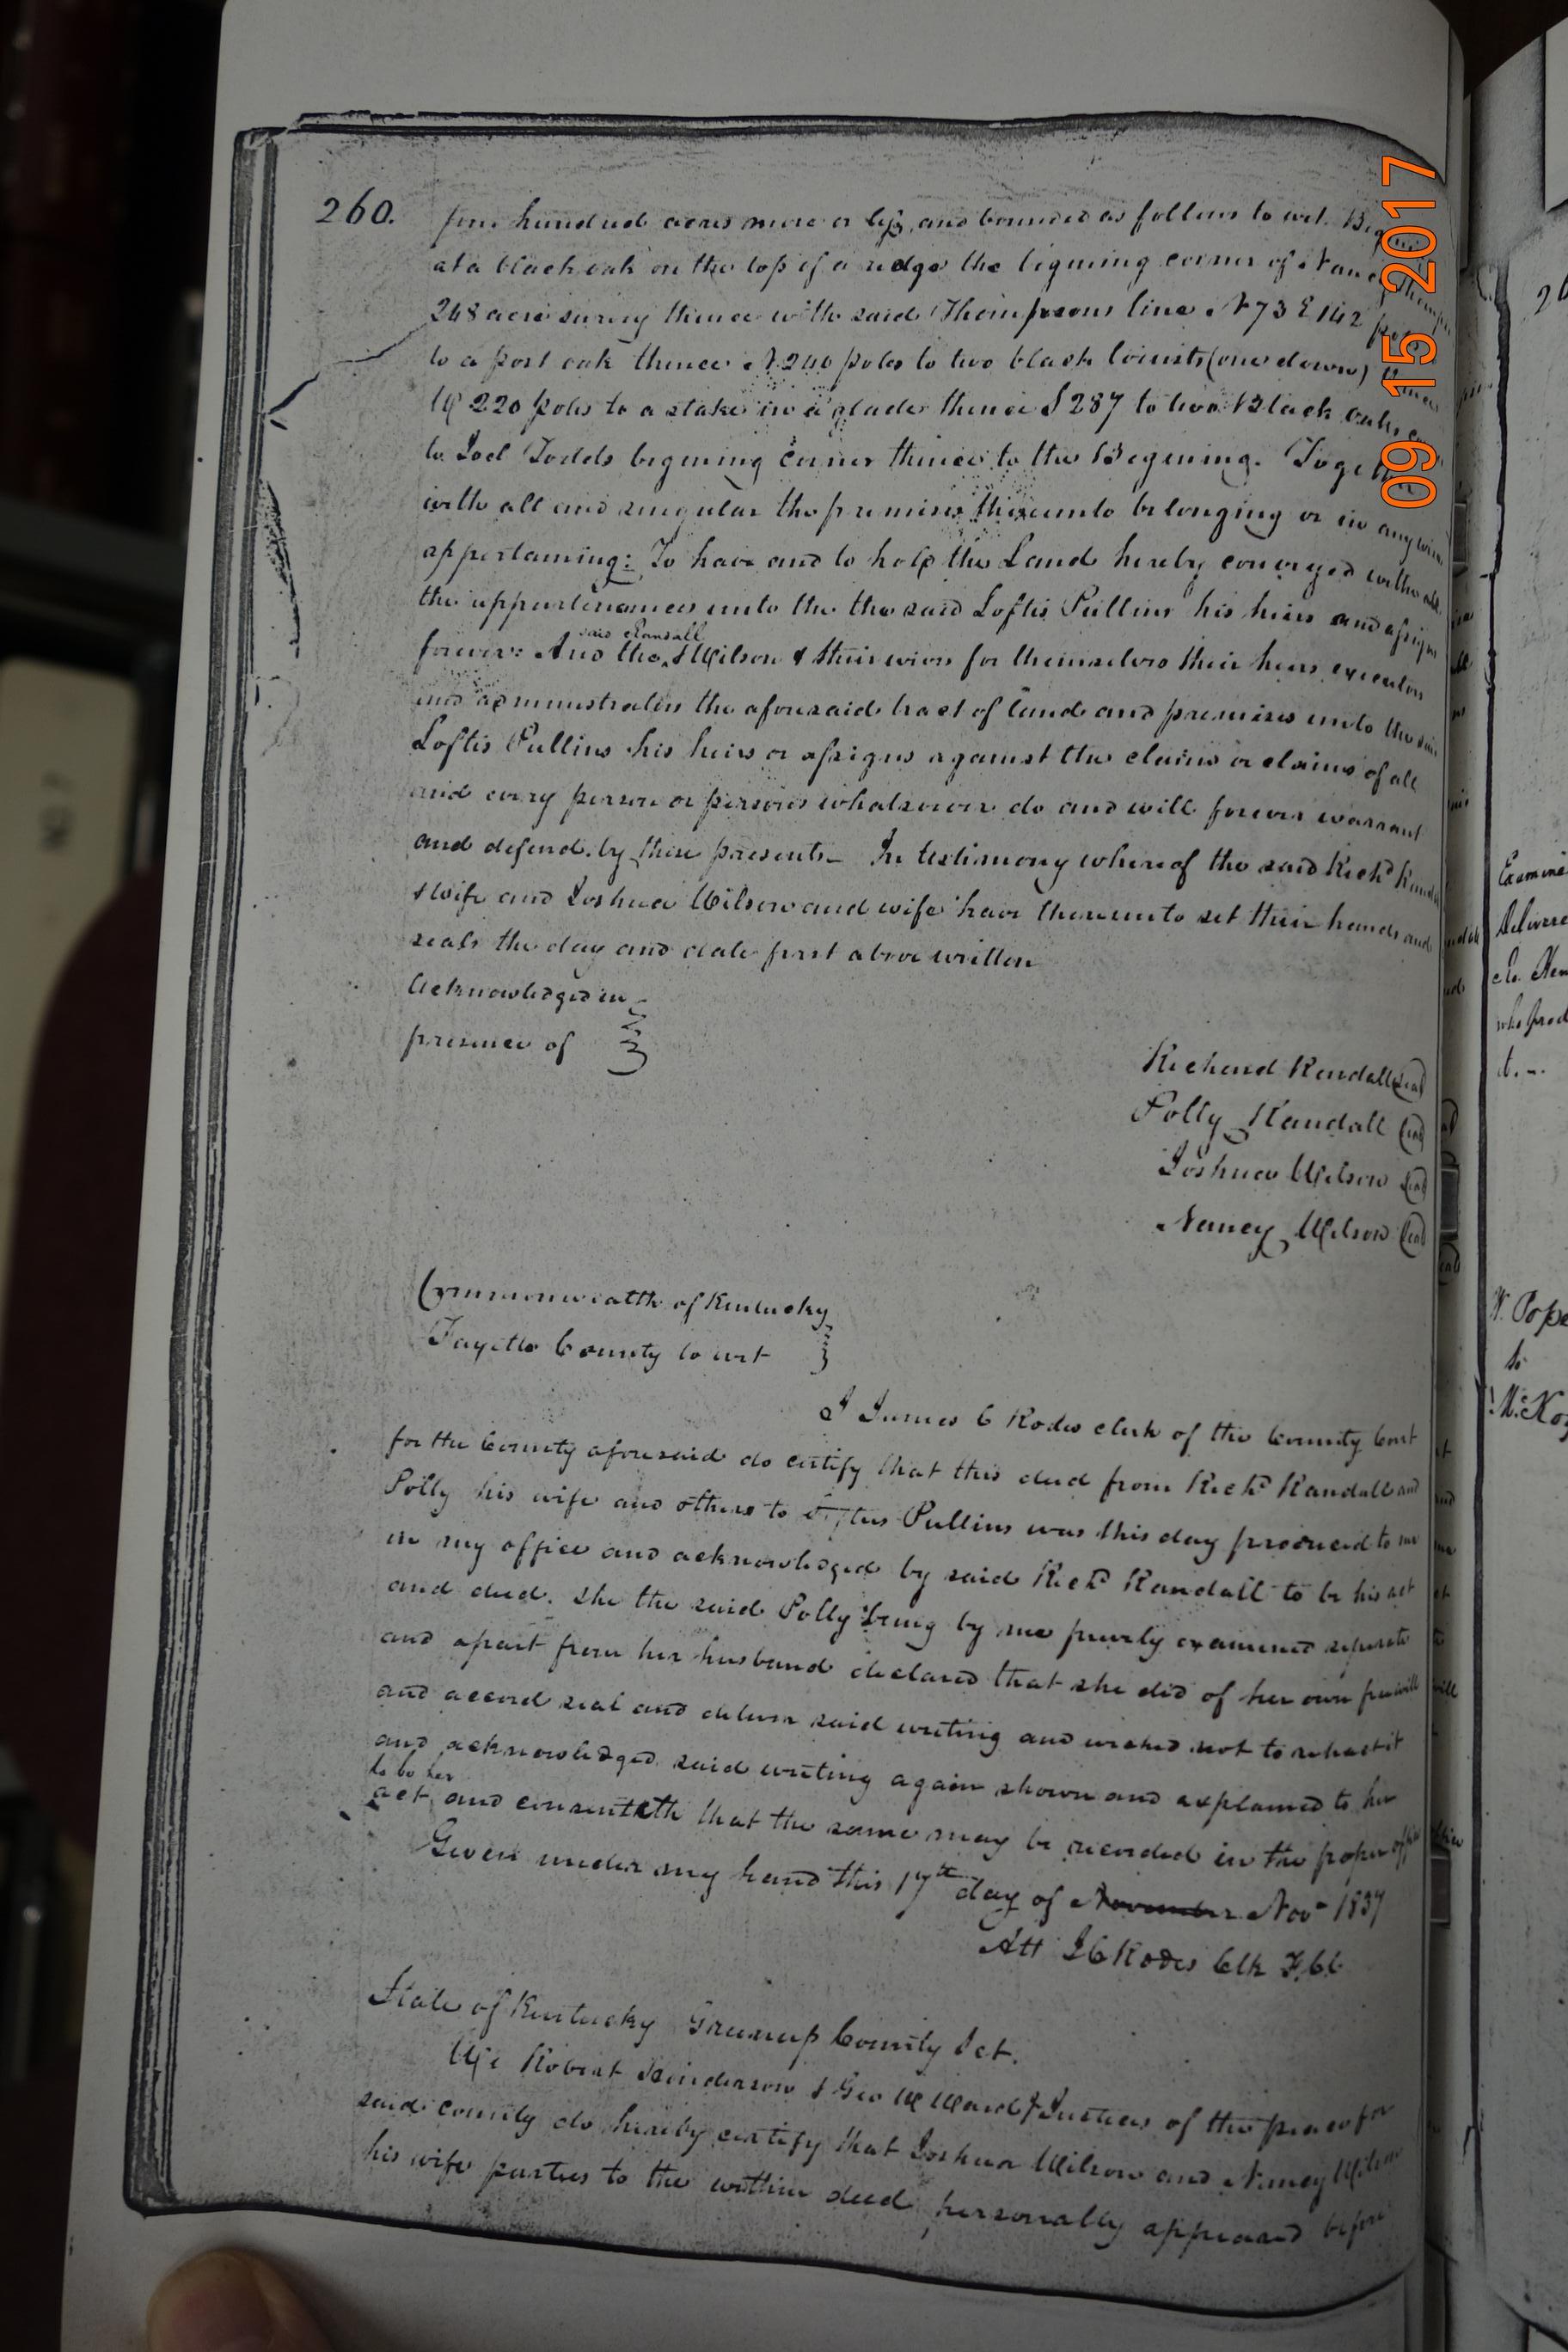 260.
four hundred acres more or less, and bounded as follows to wit. Begining
at a black oak on the top of a ridge the begining corner of Nancy
248 acre survey thence with said Thompsons line N 73 E 142 poles
to a post oak thence N 240 poles to two black locusts (one down) thence
W 220 poles to a stake in a glade thence S 287 to two Black oaks
to Joel Todds begining corner thence to the Begining. Together
with all and singular the premises thereunto belonging or in any wise
appertaining: To have and to hold the Land hereby conveyed with all
the appurtinances unto the the said Loftis Pullins his heirs and assigns
said Randall
forever: And the & Wilson & their wives for themselves their heirs executors
and administrators the aforesaid tract of land and premises unto the said
Loftis Pullins his heirs or assigns against the claim or claims of all
and every person or persons whatsoever do and will forever warrant
and defend by these presents— In testimony whereof the said Richd Randall
& wife and Joshua Wilson and wife have thereunto set their hands and
seals the day and date first above written
Acknowledged in
presence of
Richard Randall (Seal)
Polly Randall (Seal)
Joshua Wilson (Seal)
Nancy Wilson (Seal)
Commonwealth of Kentucky
Fayette County to wit
I James C Rodes clerk of the County Court
for the County aforesaid do certify that this deed from Richd Randall and
Polly his wife and others to Pullins was this day produced to me
in my office and acknowledged by said Richd Randall to be his act
and deed. She the said Polly being by me privily examined seperate
and apart from her husband declared that she did of her own free will
and accord seal and deliver said writing and wished not to retract it
and acknowledged said writing again shown and explained to her
to be her
act and consenteth that the same may be recorded in the proper office
Given under my hand this 17th day of November Novr 1837
Att J C Rodes Clk F.C.C.
State of Kentucky Greenup County Sct.
We Robert Henderson & Geo W Ward Justices of the peace for
said county do hereby certify that Joshua Wilson and Nancy Wilson
his wife parties to the within deed personally appeared before
09 15 2017
Examined
Delivered
who prod
W. Pope
to
McKoy